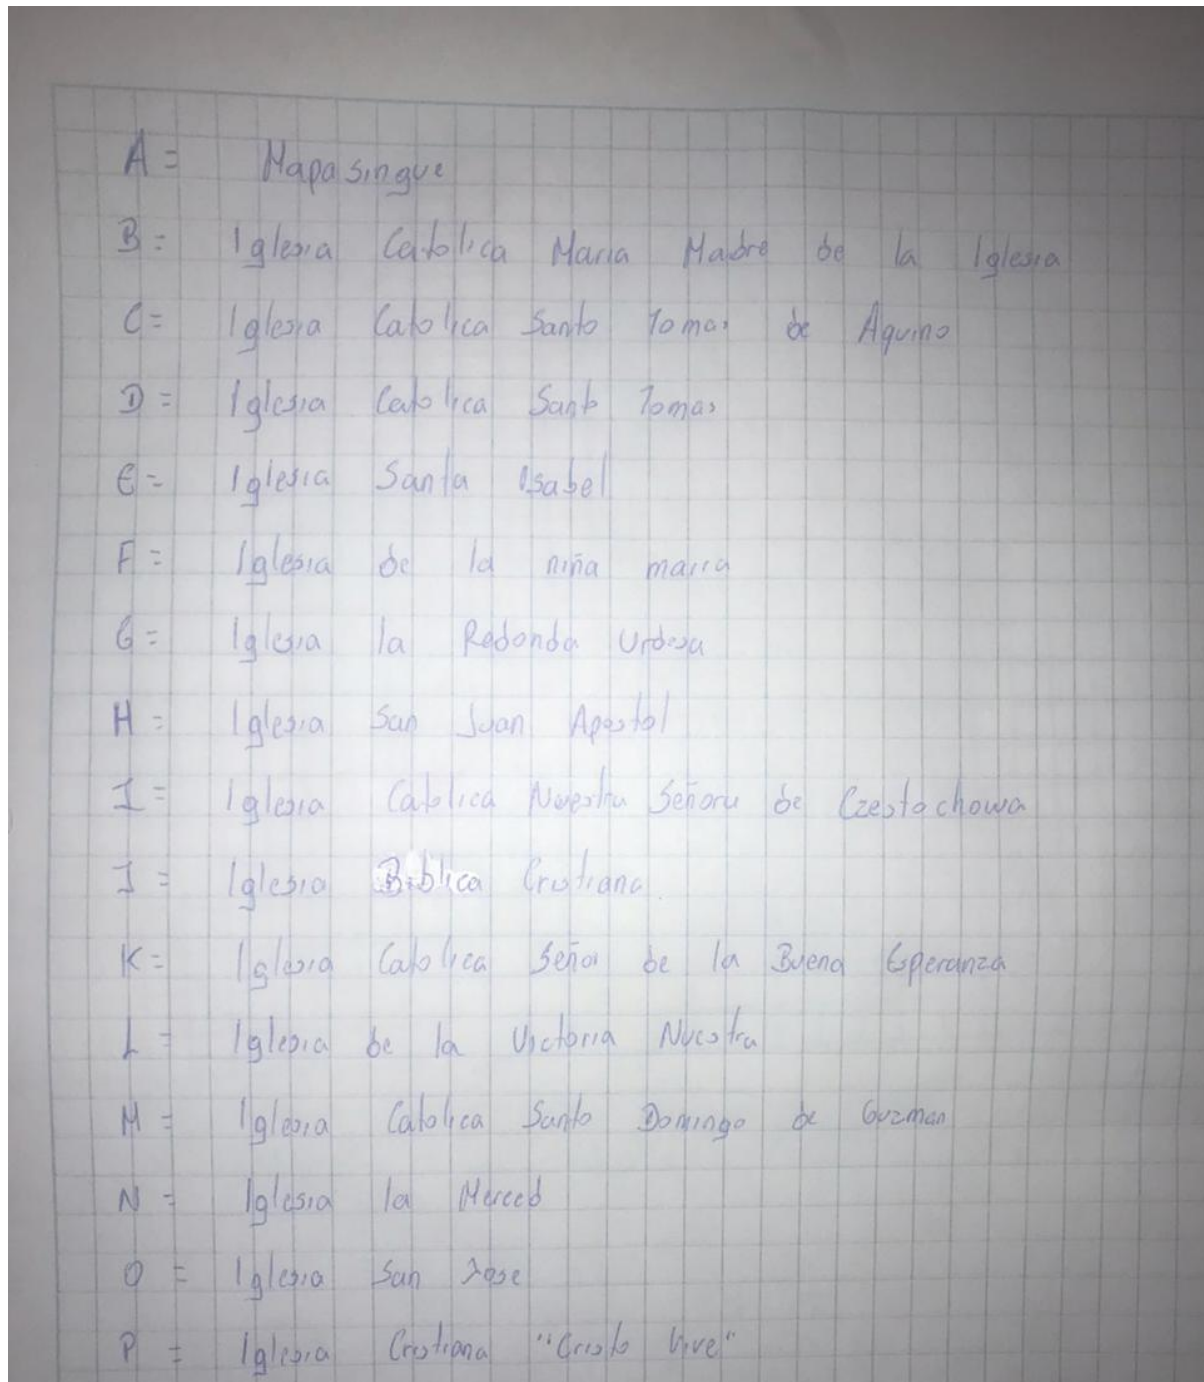 A = Mapasingue
B = Iglesia Catolica Maria Madre de la Iglesia
C = Iglesia Catolica Santo Tomas de Aquino
D = Iglesia Catolica Santo Tomas
E = Iglesia Santa Isabel
F = Iglesia de la niña maria
G = Iglesia la Redonda Urdesa
H = Iglesia San Juan Apostol
I = Iglesia Catolica Nuestra Señora de Czestochowa
J = Iglesia Biblica Cristiana.
K = Iglesia Catolica Señor de la Buena Esperanza
L = Iglesia de la Victoria Nuestra
M = Iglesia Catolica Santo Domingo de Guzman
N = Iglesia la Merced
O = Iglesia San Jose
P = Iglesia Cristiana "Cristo Vive"